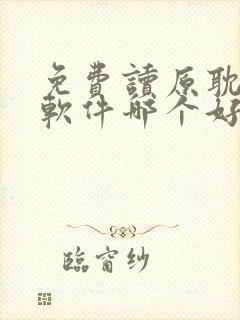 免費讀原耽
軟件哪个好
臨窗纱